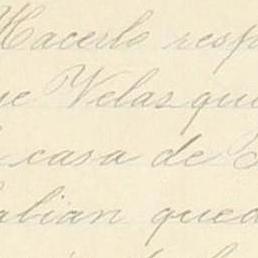 Hacerlo resp
ue Velas qui
casa de
abian qued